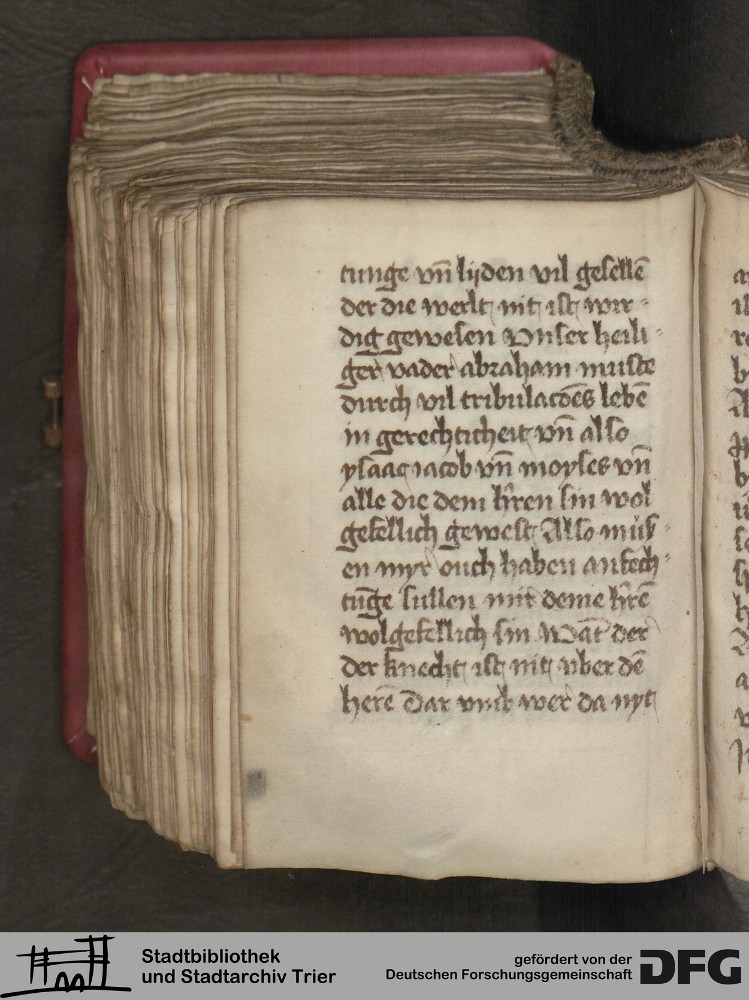 tunge vn̄ lijden vil gesellē
der die werlt nit ist wir-
dig gewesen Vnser heili-
ger vader abraham muste
durch vil tribulacōes lebē
in gerechticheit vn̄ also
ysaac iacob vn̄ moyses vn̄
alle die dem hr̄en sin wol
gefellich gewest Also müß-
en myr ouch haben anfech-
tūge sullen mir deme hr̄ē
wolgefellich sin Wāt der
der knecht ist nit vber dē
herē Dar vmb wer da nyt
Stadtbibliothek
und Stadtarchiv Trier
gefördert von der
Deutschen Forschungsgemeinschaft
DFG